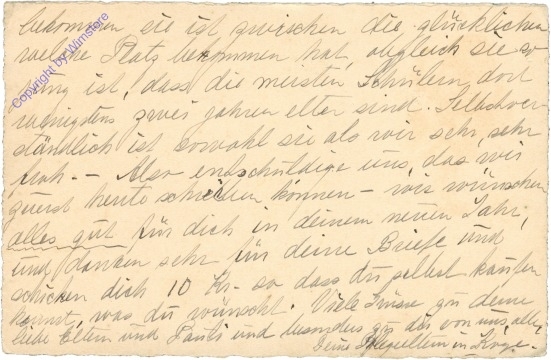 bekommen sie ist zwischen die glücklichen
welche Platz bekommen hat, obgleich sie so
jung ist, dass die meisten Schülern dort
wenigstens zwei jahren elter sind. Selbstver-
ständlich ist sowohl sie als wir sehr, sehr
froh. - Also entschuldige uns, das wir
zuerst heute schreiben können - wir wünschen
alles gut für dich in deinem neuen Jahr,
und danken sehr für deine Briefe und
schicken dich 10 Kr. so dass du selbst kaufen
kannst, was du wünscht. Viele Grüsse zu deine
liebe Eltern und Pauli und besonders zu dir von uns alle,
Deine Pflegeeltern in Køge.
Copyright by Wimstore